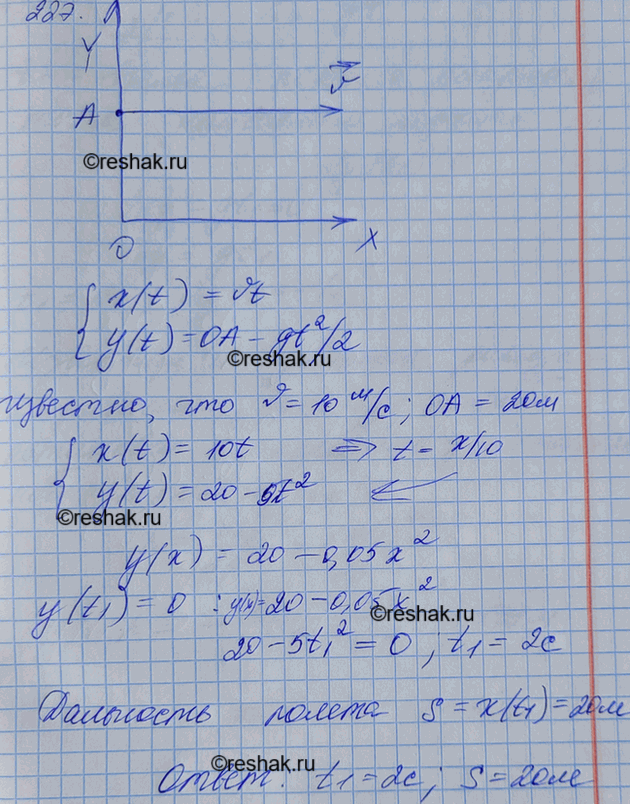 227.
Y
v
A
©reshak.ru
O
X
x(t) = vt
y(t) = OA - gt²/2
©reshak.ru
известно, что v = 10 м/с; OA = 20м
x(t) = 10t => t = x/10
y(t) = 20 - 5t²
©reshak.ru
y(x) = 20 - 0,05x²
y(t₁) = 0 : y(x)=20 - 0,05x²
©reshak.ru
20 - 5t₁² = 0; t₁ = 2с
Дальность полета S = x(t₁) = 20м
©reshak.ru
Ответ: t₁ = 2с; S = 20м